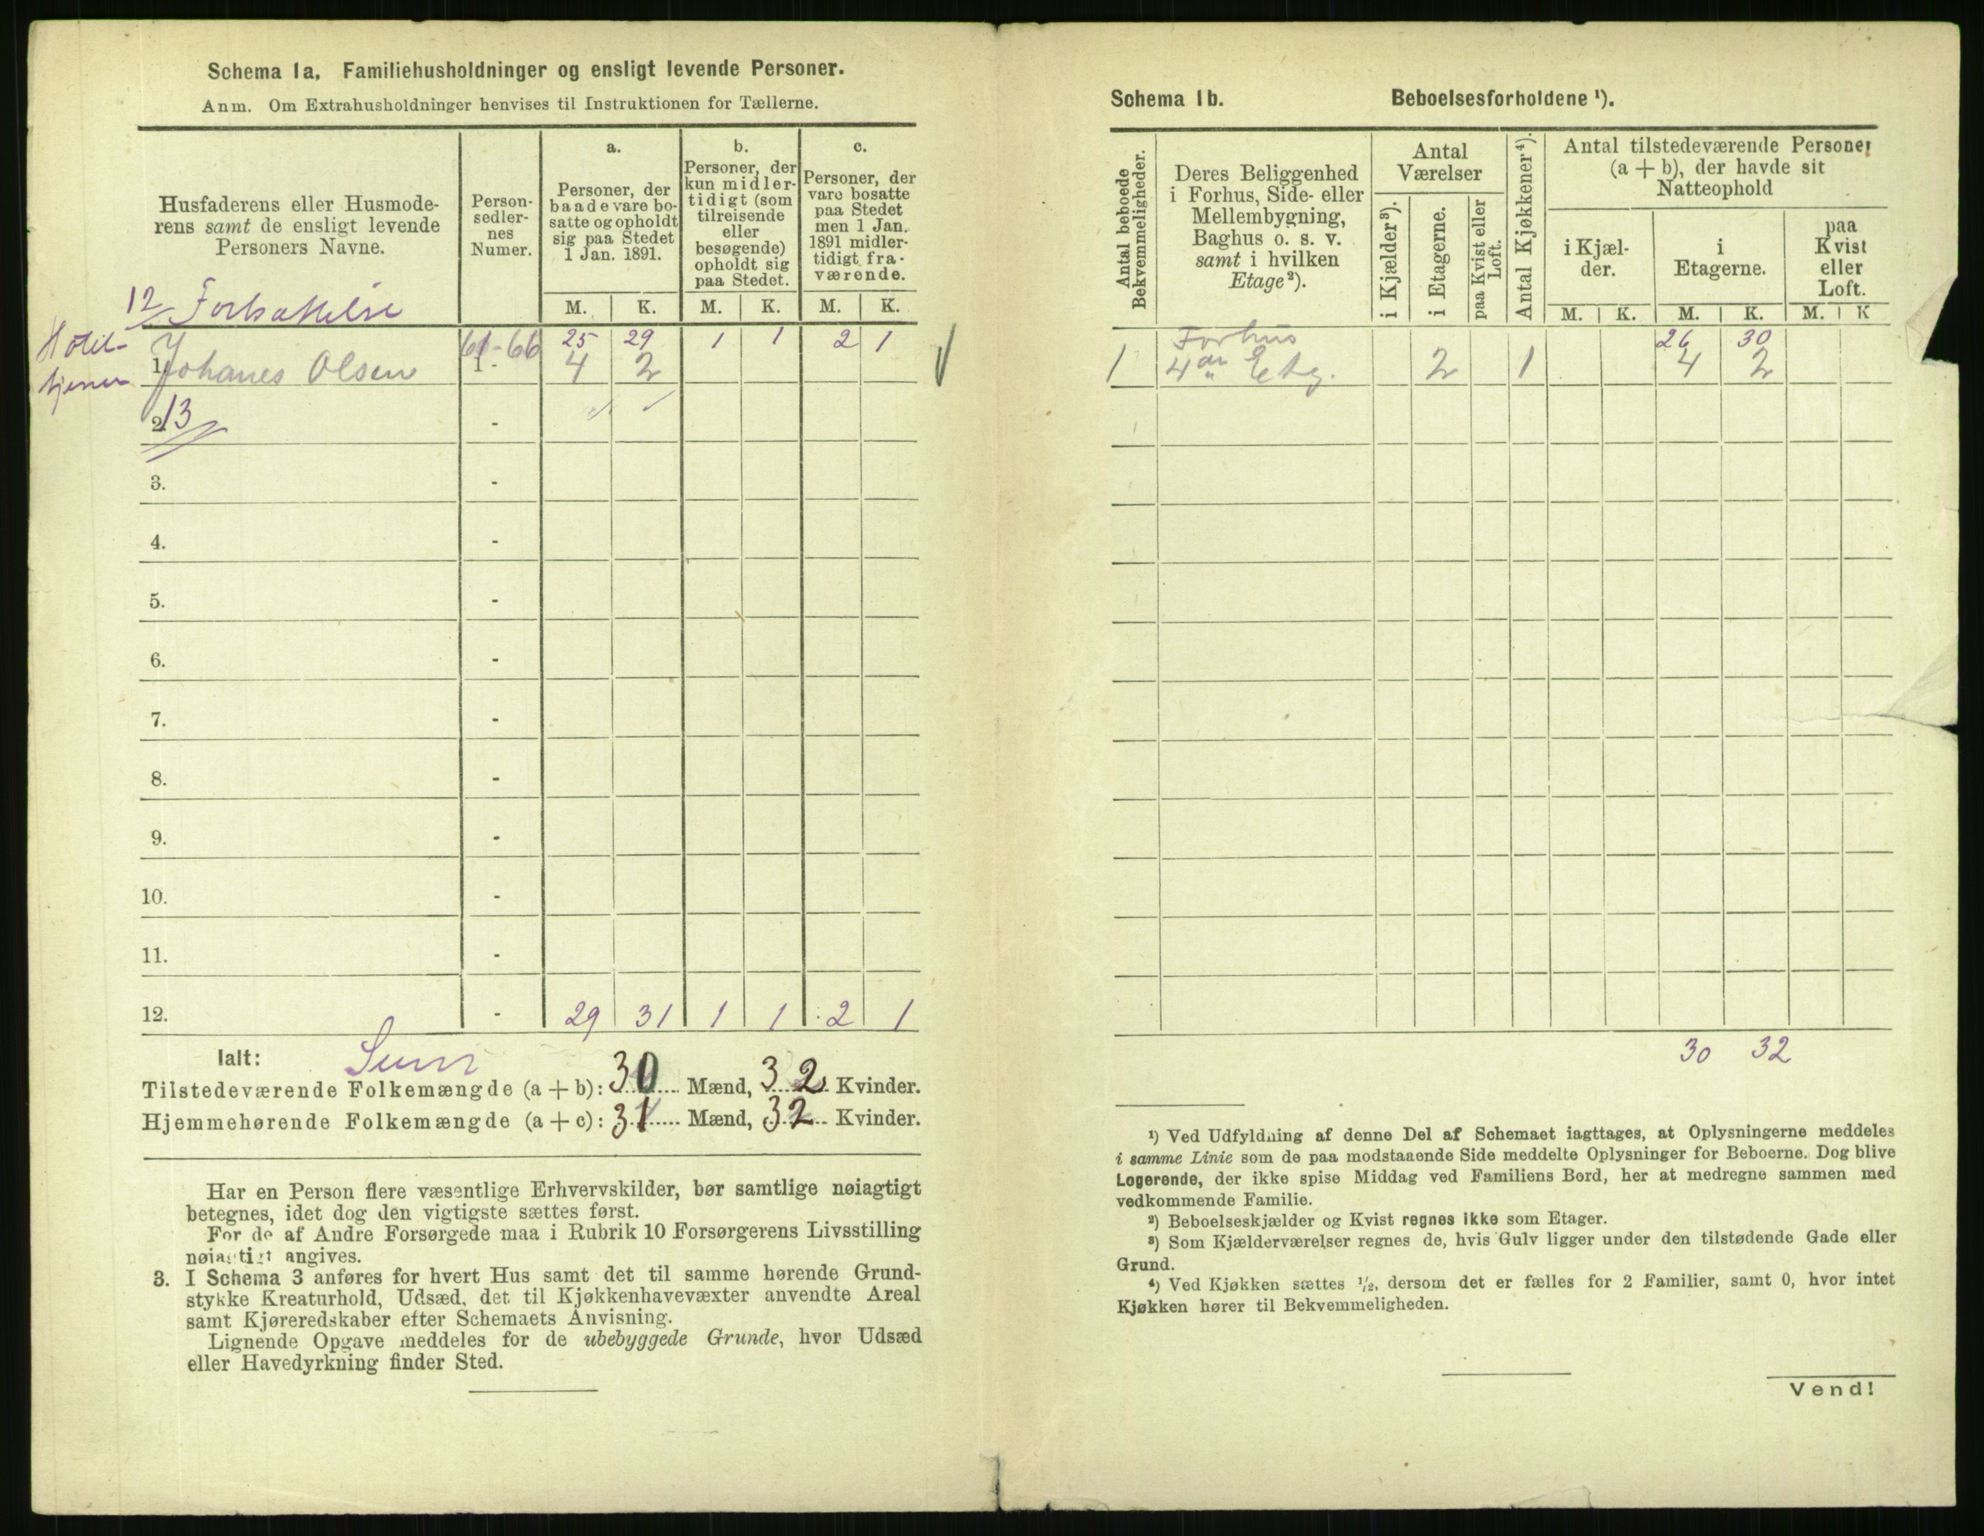 Schema 1a. Familiehusholdninger og ensligt levende Personer.
Anm. Om Extrahusholdninger henvises til Instruktionen for Tællerne.
Husfaderens eller Husmode-
rens samt de ensligt levende
Personers Navne.
Person-
sedler-
nes
Numer.
a.
Personer, der
baade vare bo-
satte og opholdt
sig paa Stedet
1 Jan. 1891.
b.
Personer, der
kun midler-
tidigt (som
tilreisende
eller
besøgende)
opholdt sig
paa Stedet.
c.
Personer, der
vare bosatte
paa Stedet
men 1 Jan.
1891 midler-
tidigt fra-
værende.
M. K. M. K. M. K.
12 Fortsættelse
Hotel-
tjener
61-66 25 29 1 1 2 1
1. Johanes Olsen 1 - 4 2
2. 13 -
3. -
4. -
5. -
6. -
7. -
8. -
9. -
10. -
11. -
12. - 29 31 1 1 2 1
Ialt: Sum
Tilstedeværende Folkemængde (a + b): 30 Mænd, 32 Kvinder.
Hjemmehørende Folkemængde (a + c): 31 Mænd, 32 Kvinder.
Har en Person flere væsentlige Erhvervskilder, bør samtlige nøiagtigt
betegnes, idet dog den vigtigste sættes først.
For de af Andre Forsørgede maa i Rubrik 10 Forsørgerens Livsstilling
nøiagtigt angives.
3. I Schema 3 anføres for hvert Hus samt det til samme hørende Grund-
stykke Kreaturhold, Udsæd, det til Kjøkkenhavevæxter anvendte Areal
samt Kjøreredskaber efter Schemaets Anvisning.
Lignende Opgave meddeles for de ubebyggede Grunde, hvor Udsæd
eller Havedyrkning finder Sted.
Schema 1b. Beboelsesforholdene ¹).
Antal beboede
Bekvemmeligheder.
Deres Beliggenhed
i Forhus, Side- eller
Mellembygning,
Baghus o. s. v.
samt i hvilken
Etage ²).
Antal
Værelser
i Kjælder ³).
i Etagerne.
paa Kvist eller
Loft.
Antal Kjøkkener ⁴).
Antal tilstedeværende Personer
(a + b), der havde sit
Natteophold
i Kjæl-
der.
i
Etagerne.
paa
Kvist
eller
Loft.
M. K. M. K. M. K
Forhus 26 30
1 4de Etg. 2 1 4 2
30 32
¹) Ved Udfyldning af denne Del af Schemaet iagttages, at Oplysningerne meddeles
i samme Linie som de paa modstaaende Side meddelte Oplysninger for Beboerne. Dog blive
Logerende, der ikke spise Middag ved Familiens Bord, her at medregne sammen med
vedkommende Familie.
²) Beboelseskjælder og Kvist regnes ikke som Etager.
³) Som Kjælderværelser regnes de, hvis Gulv ligger under den tilstødende Gade eller
Grund.
⁴) Ved Kjøkken sættes ½, dersom det er fælles for 2 Familier, samt 0, hvor intet
Kjøkken hører til Bekvemmeligheden.
Vend!